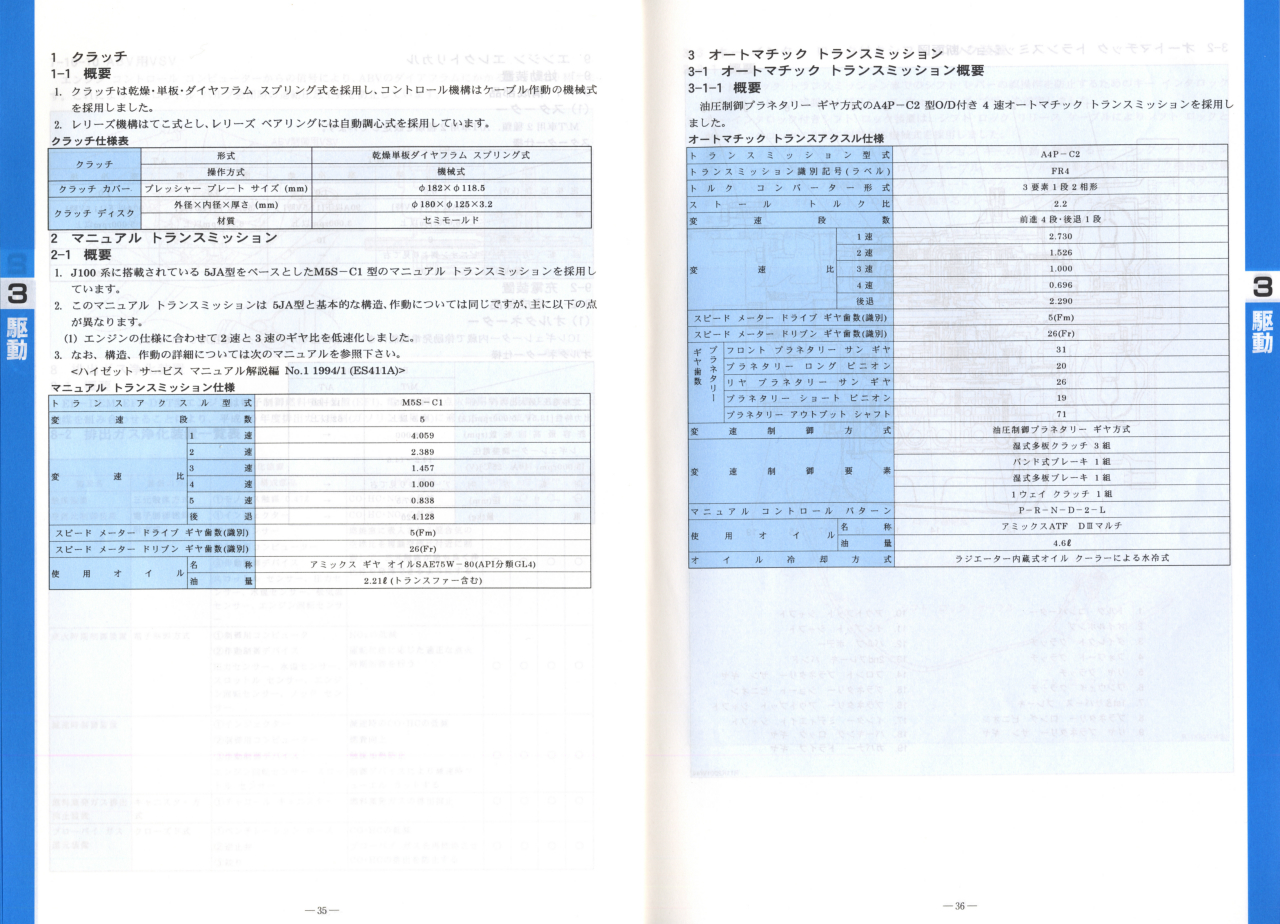 1 クラッチ
1-1 概要
1. クラッチは乾燥・単板・ダイヤフラム スプリング式を採用し、コントロール機構はケーブル作動の機械式
を採用しました。
2. レリーズ機構はてこ式とし、レリーズ ベアリングには自動調心式を採用しています。
クラッチ仕様表
クラッチ 形式 乾燥単板ダイヤフラム スプリング式
操作方式 機械式
クラッチ カバー プレッシャー プレート サイズ (mm) φ182×φ118.5
クラッチ ディスク 外径×内径×厚さ (mm) φ180×φ125×3.2
材質 セミモールド
2 マニュアル トランスミッション
2-1 概要
1. J100 系に搭載されている 5JA型をベースとしたM5S−C1 型のマニュアル トランスミッションを採用し
ています。
2. このマニュアル トランスミッションは 5JA型と基本的な構造、作動については同じですが、主に以下の点
が異なります。
(1) エンジンの仕様に合わせて 2 速と 3 速のギヤ比を低速化しました。
3. なお、構造、作動の詳細については次のマニュアルを参照下さい。
<ハイゼット サービス マニュアル解説編 No.1 1994/1 (ES411A)>
マニュアル トランスミッション仕様
トランスアクスル型式 M5S−C1
変速段数 5
変速比 1速 4.059
2速 2.389
3速 1.457
4速 1.000
5速 0.838
後退 4.128
スピード メーター ドライブ ギヤ歯数(識別) 5(Fm)
スピード メーター ドリブン ギヤ歯数(識別) 26(Fr)
使用オイル 名称 アミックス ギヤ オイルSAE75W−80(API分類GL4)
油量 2.21ℓ(トランスファー含む)
—35—
3 駆動
3 オートマチック トランスミッション
3-1 オートマチック トランスミッション概要
3-1-1 概要
油圧制御プラネタリー ギヤ方式のA4P−C2 型O/D付き 4 速オートマチック トランスミッションを採用し
ました。
オートマチック トランスアクスル仕様
トランスミッション型式 A4P−C2
トランスミッション識別記号(ラベル) FR4
トルク コンバーター形式 3要素1段2相形
ストール トルク比 2.2
変速段数 前進4段・後退1段
変速比 1速 2.730
2速 1.526
3速 1.000
4速 0.696
後退 2.290
スピード メーター ドライブ ギヤ歯数(識別) 5(Fm)
スピード メーター ドリブン ギヤ歯数(識別) 26(Fr)
プラネタリー ギヤ歯数 フロント プラネタリー サン ギヤ 31
プラネタリー ロング ピニオン 20
リヤ プラネタリー サン ギヤ 26
プラネタリー ショート ピニオン 19
プラネタリー アウトプット シャフト 71
変速制御方式 油圧制御プラネタリー ギヤ方式
変速制御要素 湿式多板クラッチ 3組
バンド式ブレーキ 1組
湿式多板ブレーキ 1組
1ウェイ クラッチ 1組
マニュアル コントロール パターン P−R−N−D−2−L
使用オイル 名称 アミックスATF DⅢマルチ
油量 4.6ℓ
オイル冷却方式 ラジエーター内蔵式オイル クーラーによる水冷式
—36—
3 駆動